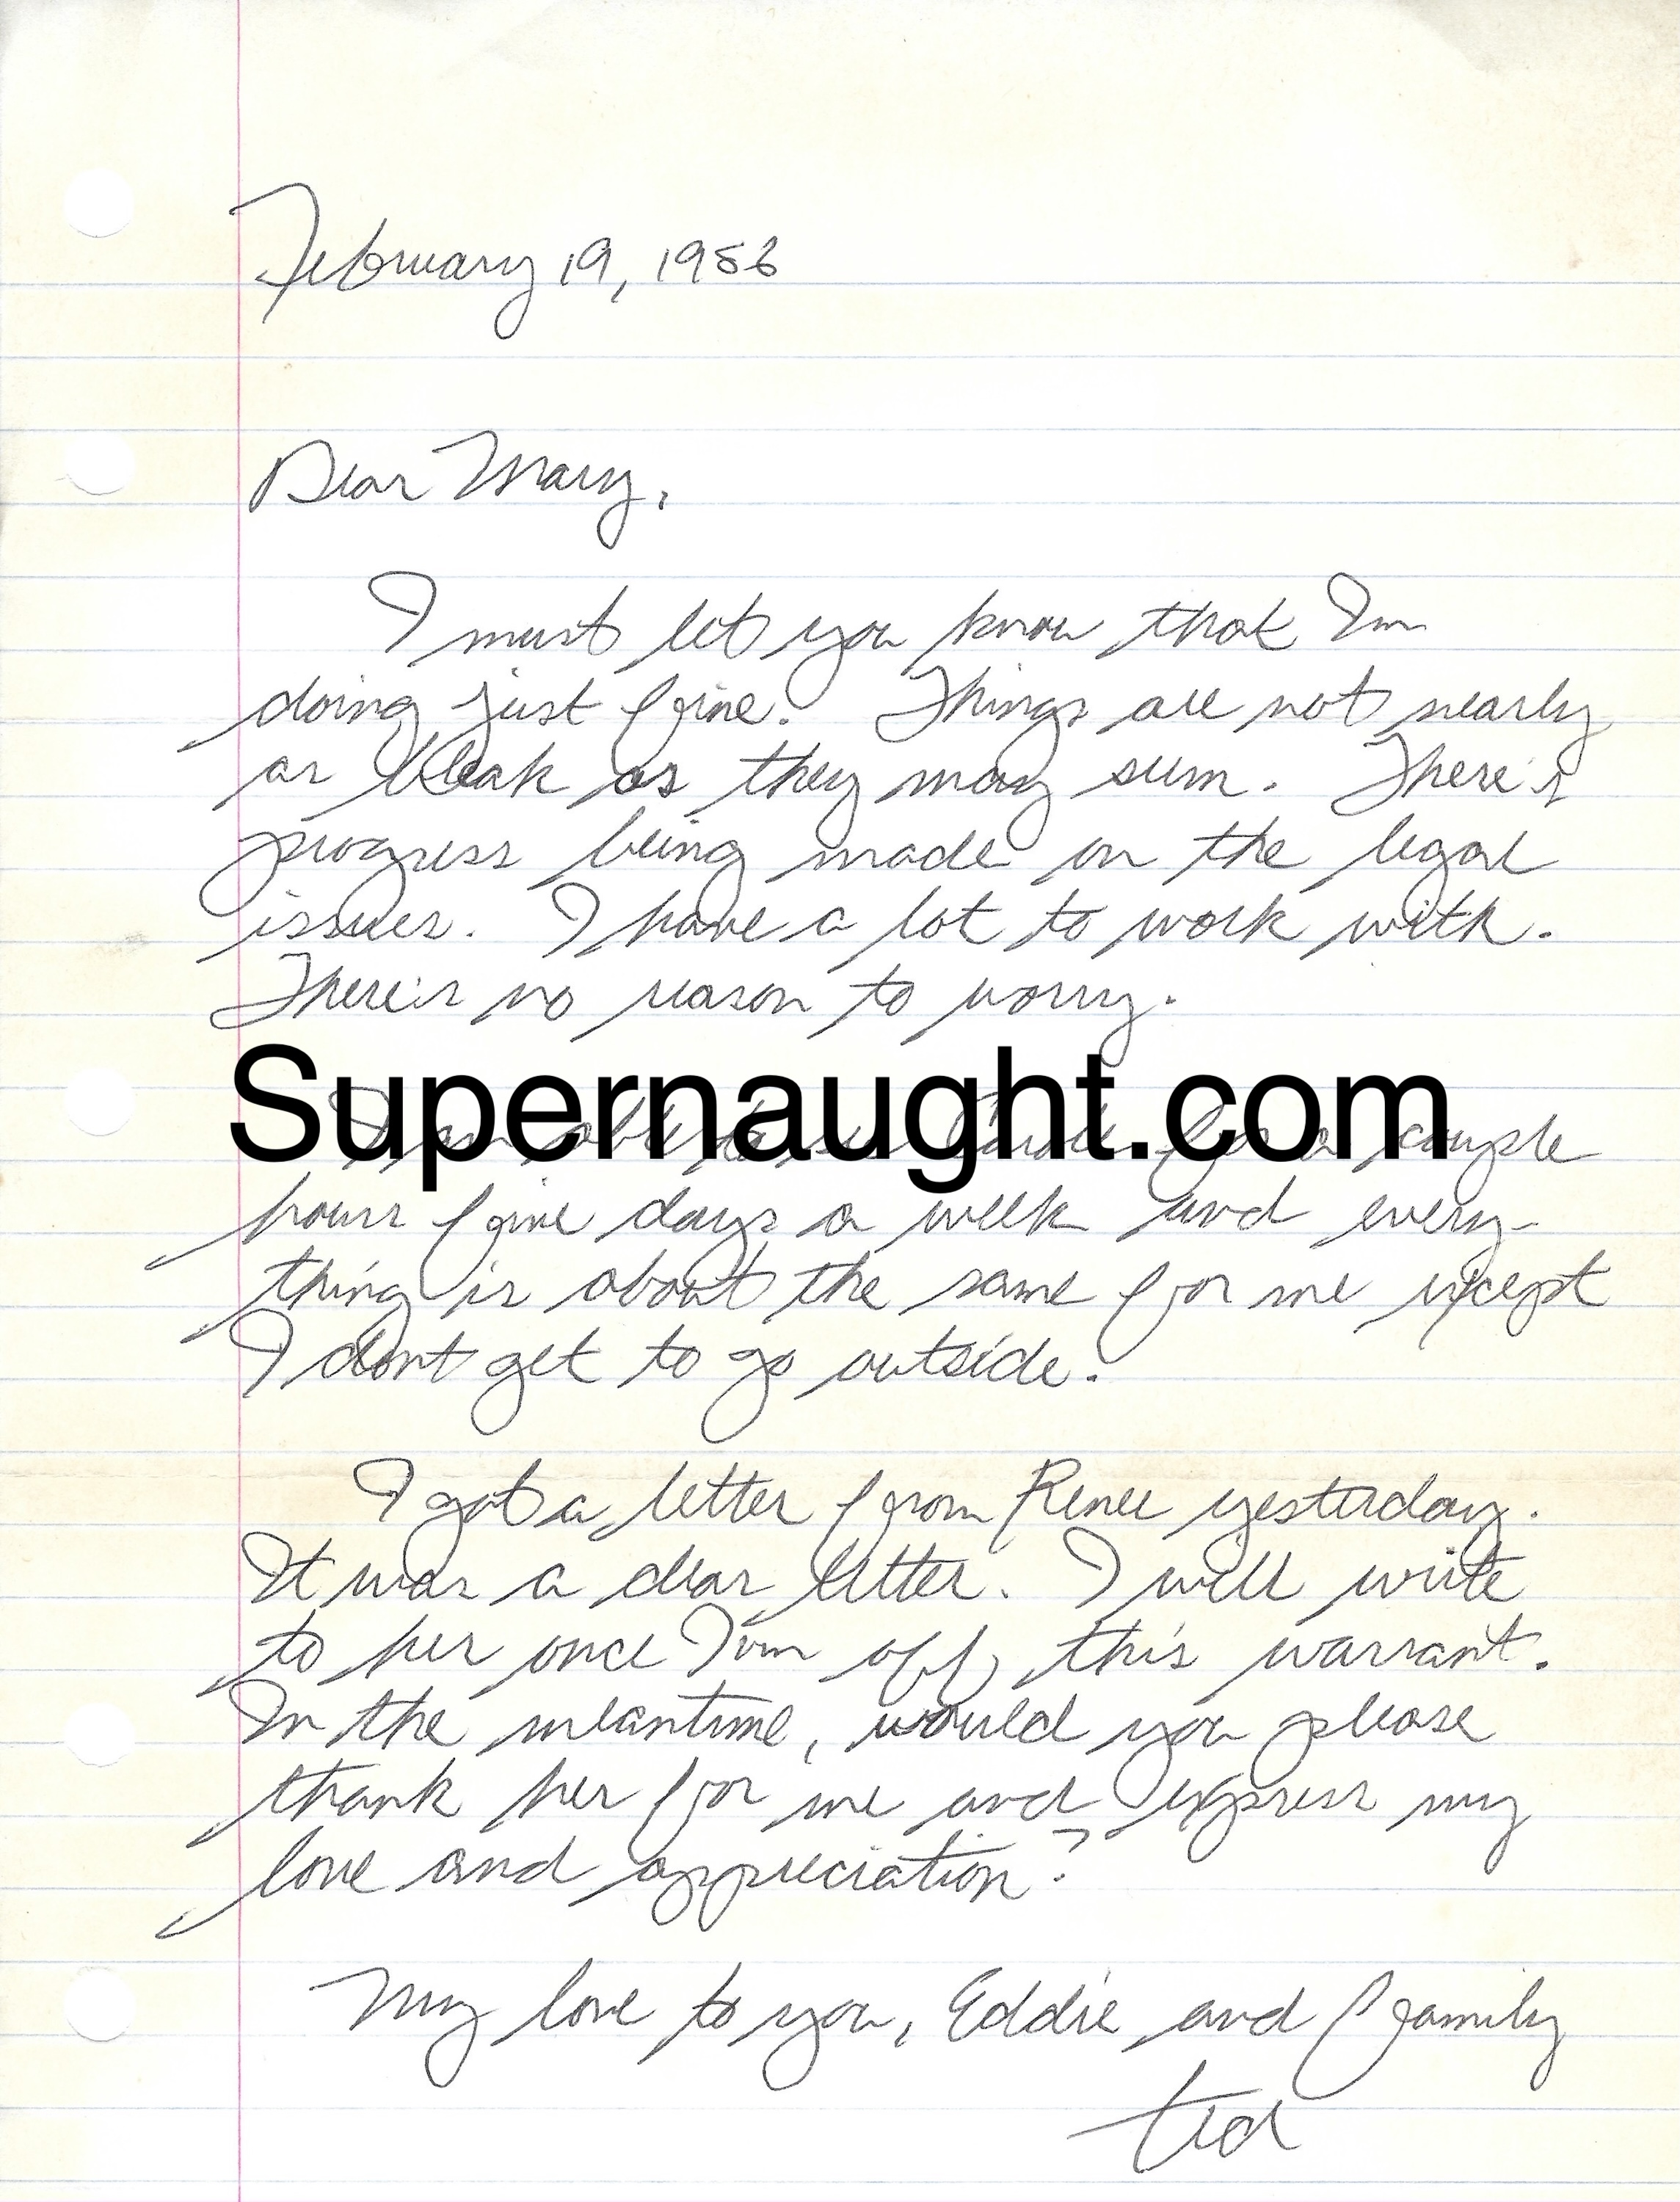 February 19, 1986
Dear Mary,
I must let you know that I'm
doing just fine. Things are not nearly
as bleak as they may seem. There's
progress being made on the legal
issues. I have a lot to work with.
There's no reason to worry.
Supernaught.com
able to see Carole for a couple
hours five days a week and every-
thing is about the same for me except
I don't get to go outside.
I got a letter from Renee yesterday.
It was a dear letter. I will write
to her once I'm off this warrant.
In the meantime, would you please
thank her for me and express my
love and appreciation?
My love to you, Eddie and family
ted